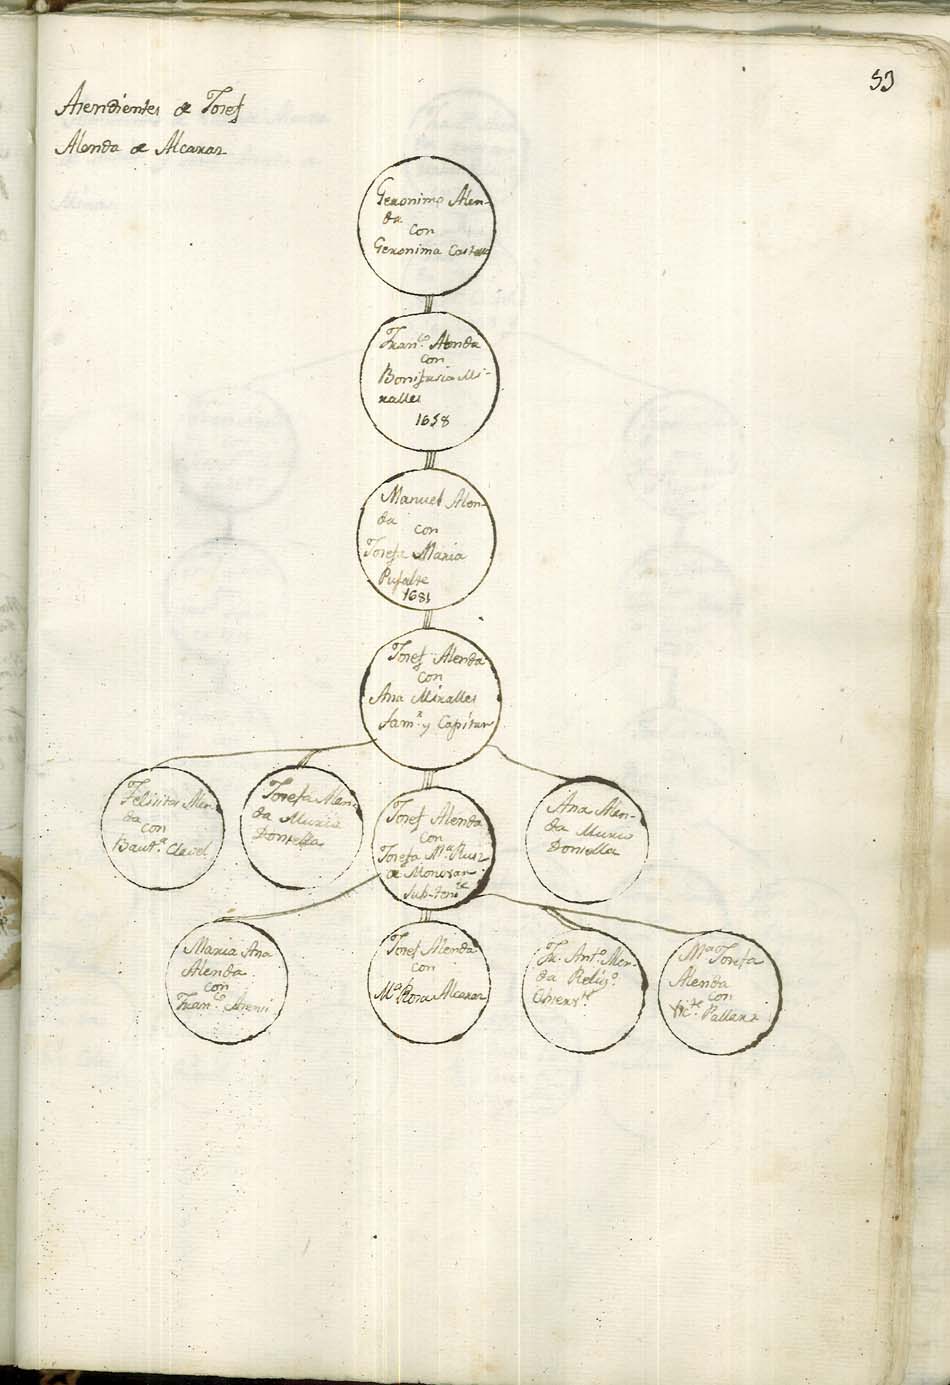 53
Asendientes de Josef
Alenda de Alcaraz
Geronimo Alen-
da
con
Geronima
Franco. Alenda
con
Bonifasia Mi-
ralles
1658
Manuel Alen-
da
con
Josefa Maria
Pujalte
1681
Josef Alenda
con
Ana Miralles
famr. y Capitan
Felisitas Alen-
da
con
Bauta. Clavel
Josefa Alen-
da Murio
Donsella
Josef Alenda
con
Josefa Ma. Ruiz
de Monovar
Sub-tente
Ana Alen-
da Murio
Donsella
Maria Ana
Alenda
con
Franco.
Josef Alenda
con
Ma. Rosa Alcaraz
Fr. Anto. Alen-
da Religo.
Observte
Ma. Josefa
Alenda
con
Victe. Pallares